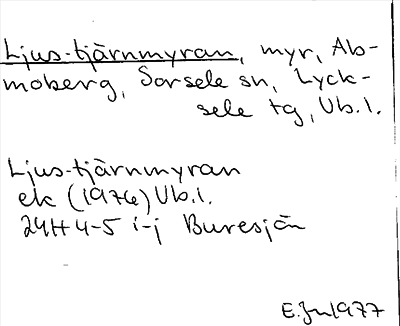 Ljus-tjärnmyran, myr, Ab-
moberg, Sorsele sn, Lyck-
sele tg, Vb.l.
Ljus-tjärnmyran
ek (1976) Vb.l.
24H 4-5 i-j Buresjön
E.Jn 1977